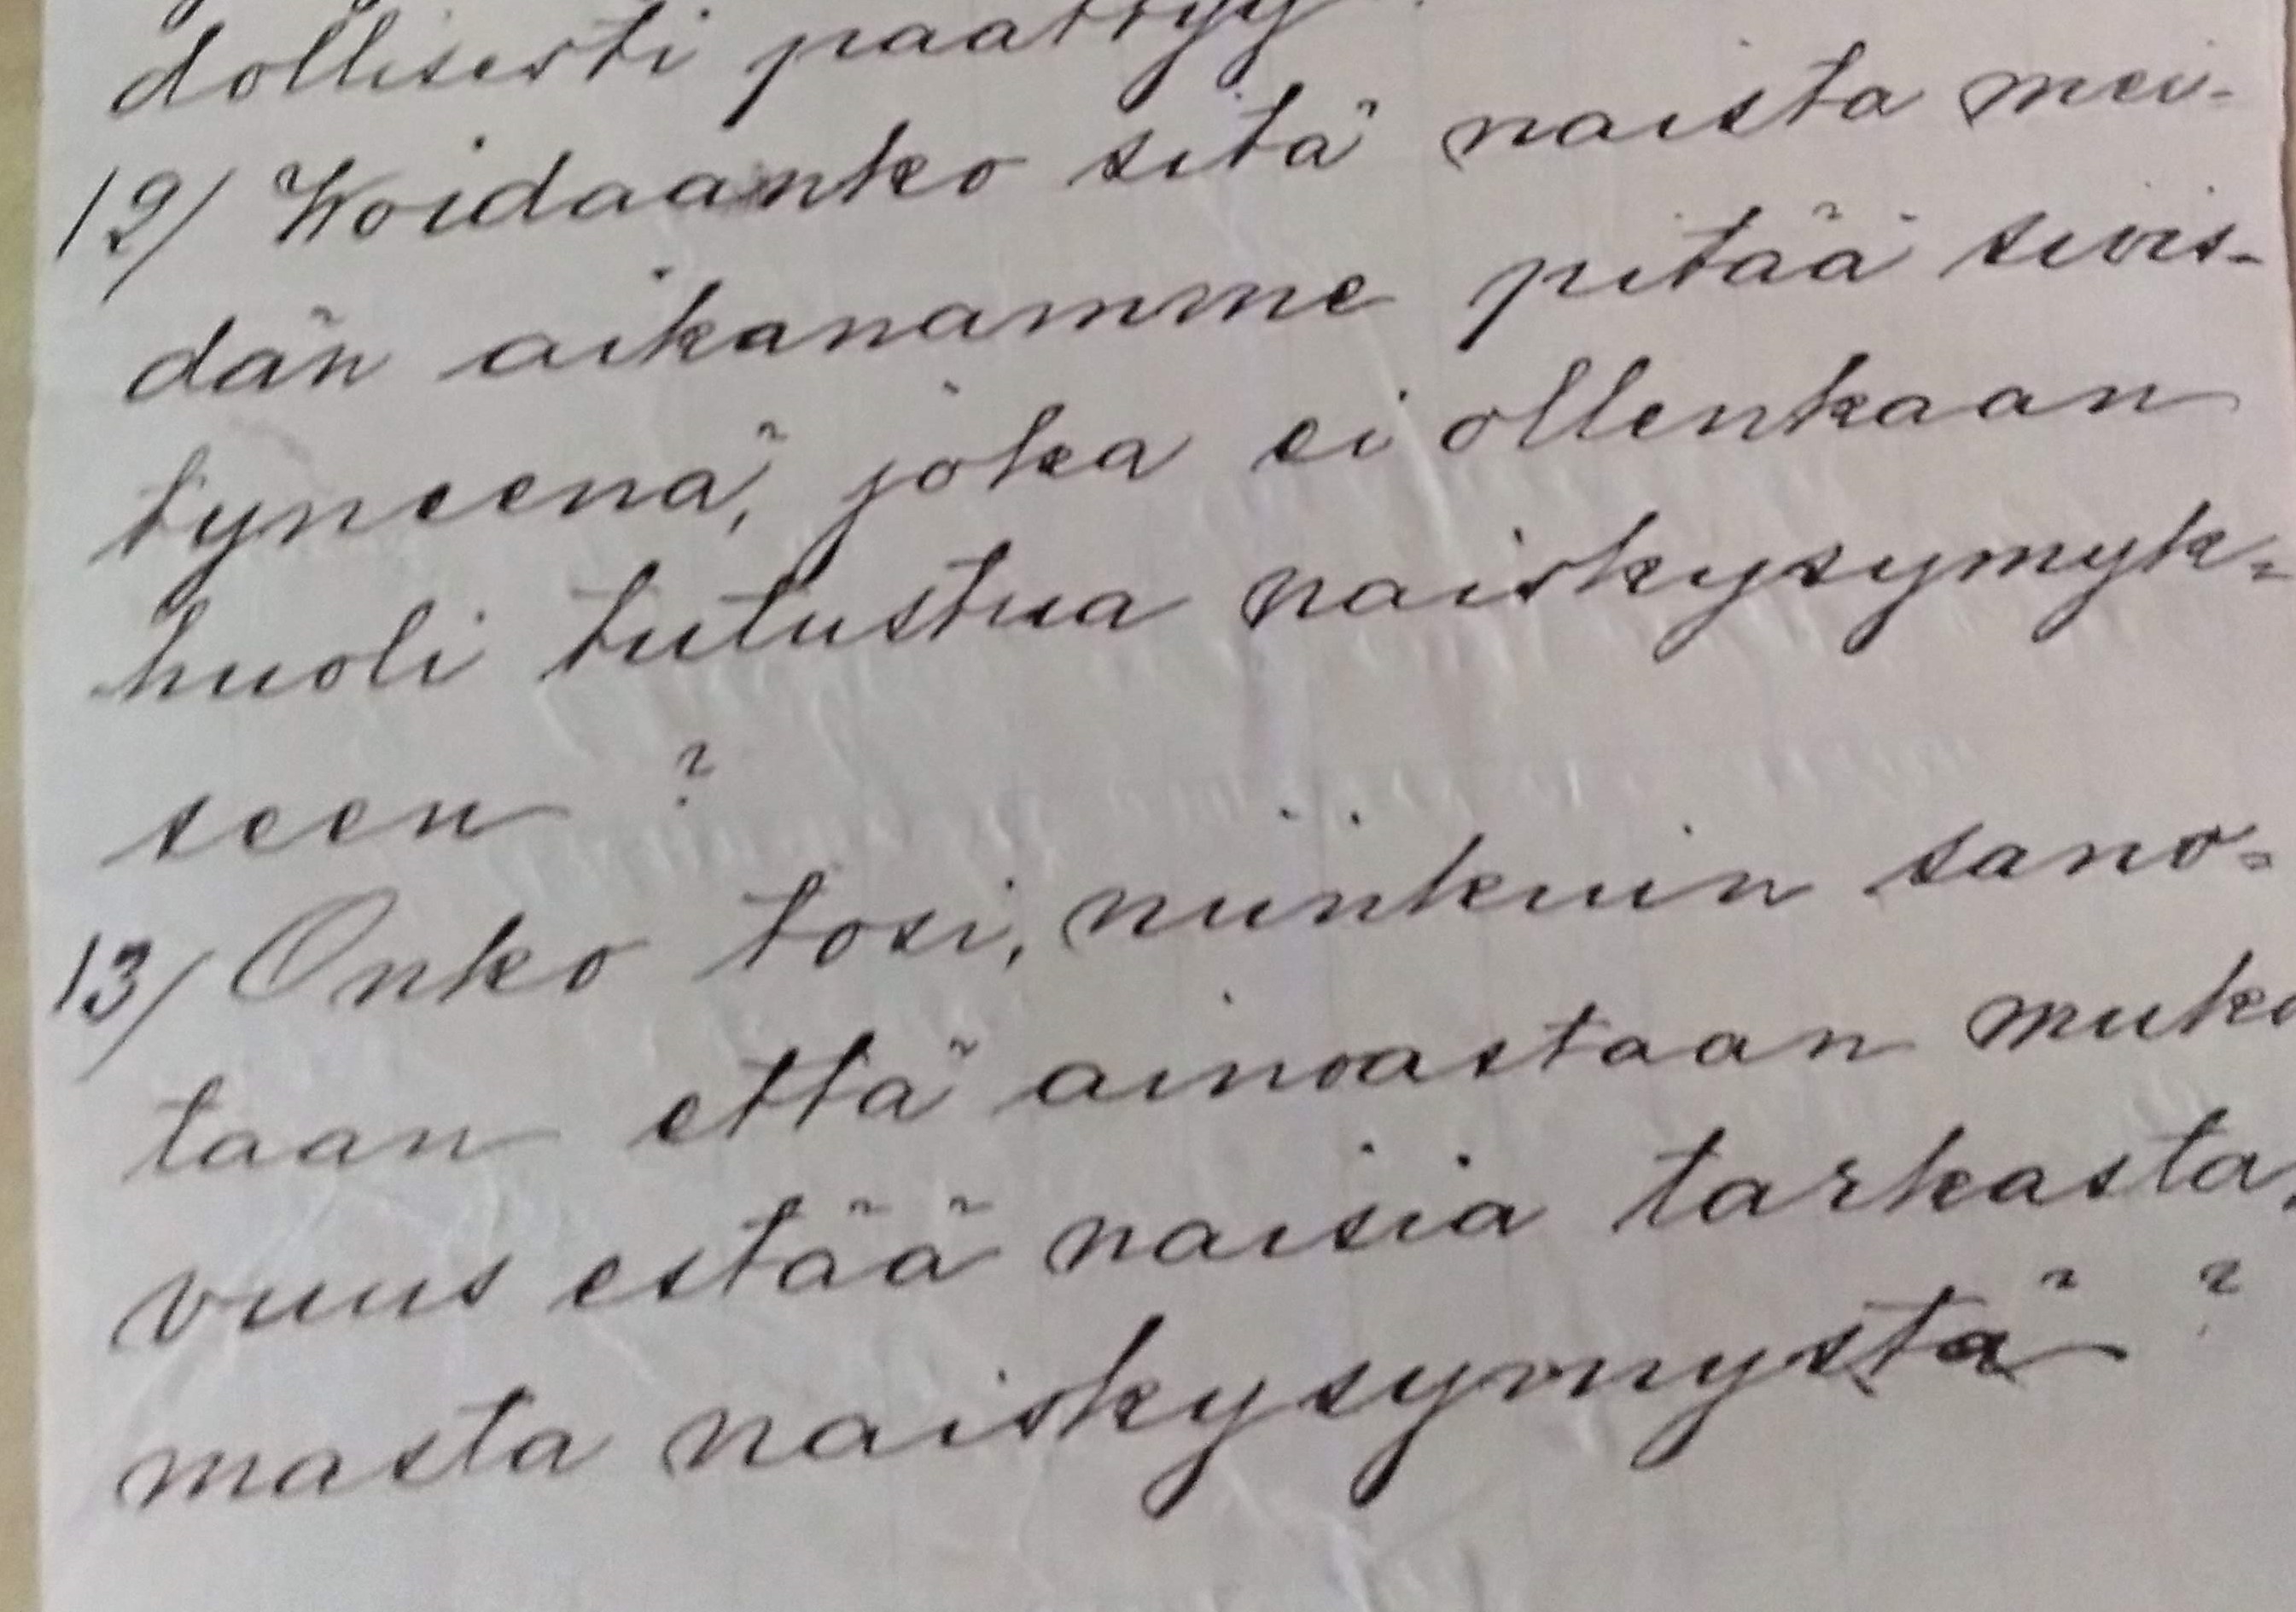 dollisesti päättyy
12/ Woidaanko sitä naista mei-
dän aikanamme pitää sivis-
tyneenä, joka ei ollenkaan
huoli tutustua naiskysymyk=
seen ?
13/ Onko tosi, niinkuin sano=
taan että ainoastaan muka
vuus estää naisia tarkasta,
masta naiskysymystä ?